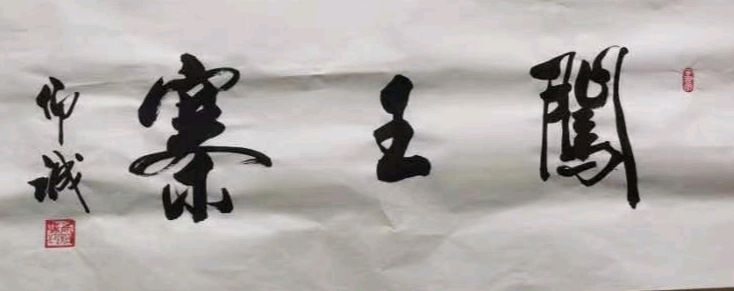 闖王寨
仲誠